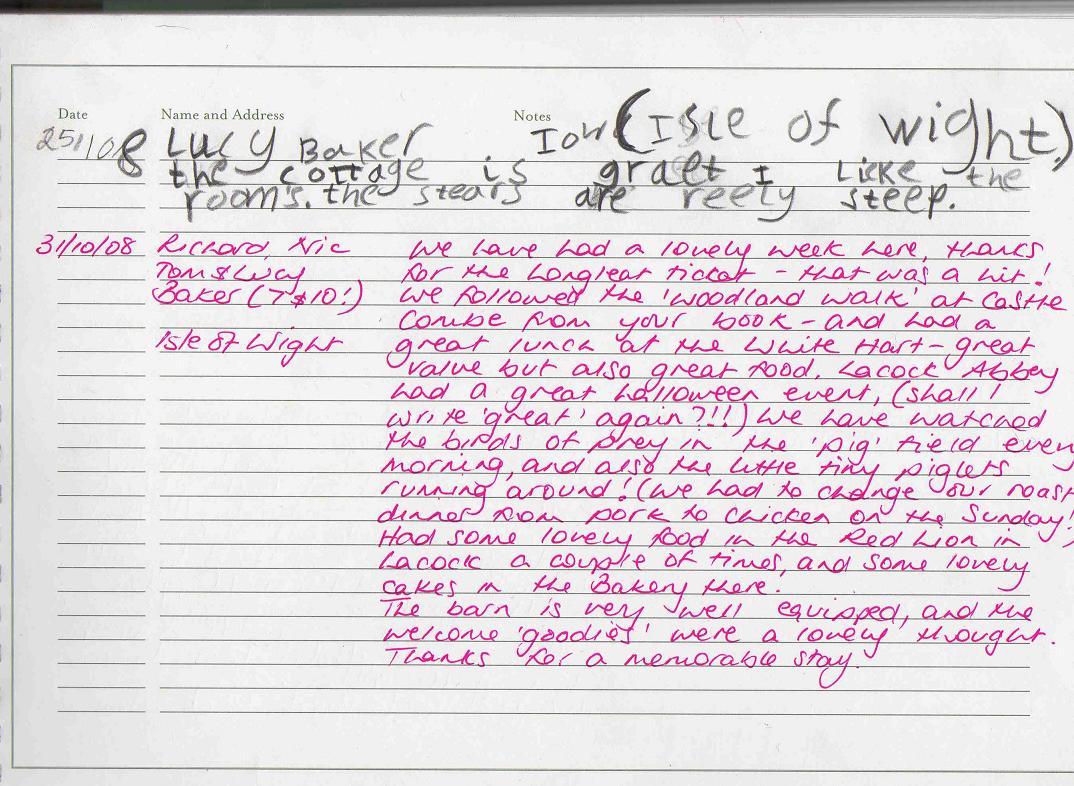 Date Name and Address Notes
25/1/08 Lucy Baker Iow (Isle of wight,)
the cottage is graet I Licke the
rooms. the stears are reely steep.
31/10/08 Richard, Nic We have had a lovely week here, thanks
Tom & Lucy for the Longleat ticket - that was a hit!
Baker (7 & 10!) We followed the 'woodland walk' at Castle
Combe from your book - and had a
Isle of Wight great lunch at the White Hart - great
value but also great food. Lacock Abbey
had a great halloween event, (shall I
write 'great' again?!!) We have watched
the birds of prey in the 'pig' field every
morning, and also the little tiny piglets
running around! (We had to change our roast
dinner from pork to chicken on the Sunday!)
Had some lovely food in the Red Lion in
Lacock a couple of times, and some lovely
cakes in the Bakery there.
The barn is very well equipped, and the
welcome 'goodies' were a lovely thought.
Thanks for a memorable stay.